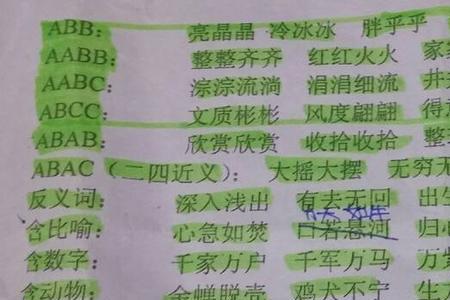 ABB： 亮晶晶 冷冰冰 胖乎乎
AABB： 整整齐齐 红红火火 家
AABC： 淙淙流淌 涓涓细流 井
ABCC： 文质彬彬 风度翩翩 得
ABAB： 欣赏欣赏 收拾收拾 整
ABAC（二四近义）： 大摇大摆 无穷无
反义词： 深入浅出 有去无回 出生
含比喻： 心急如焚 口若悬河 归心
含数字： 千家万户 千军万马 万
含动物： 金蝉脱壳 鸡犬不宁 生